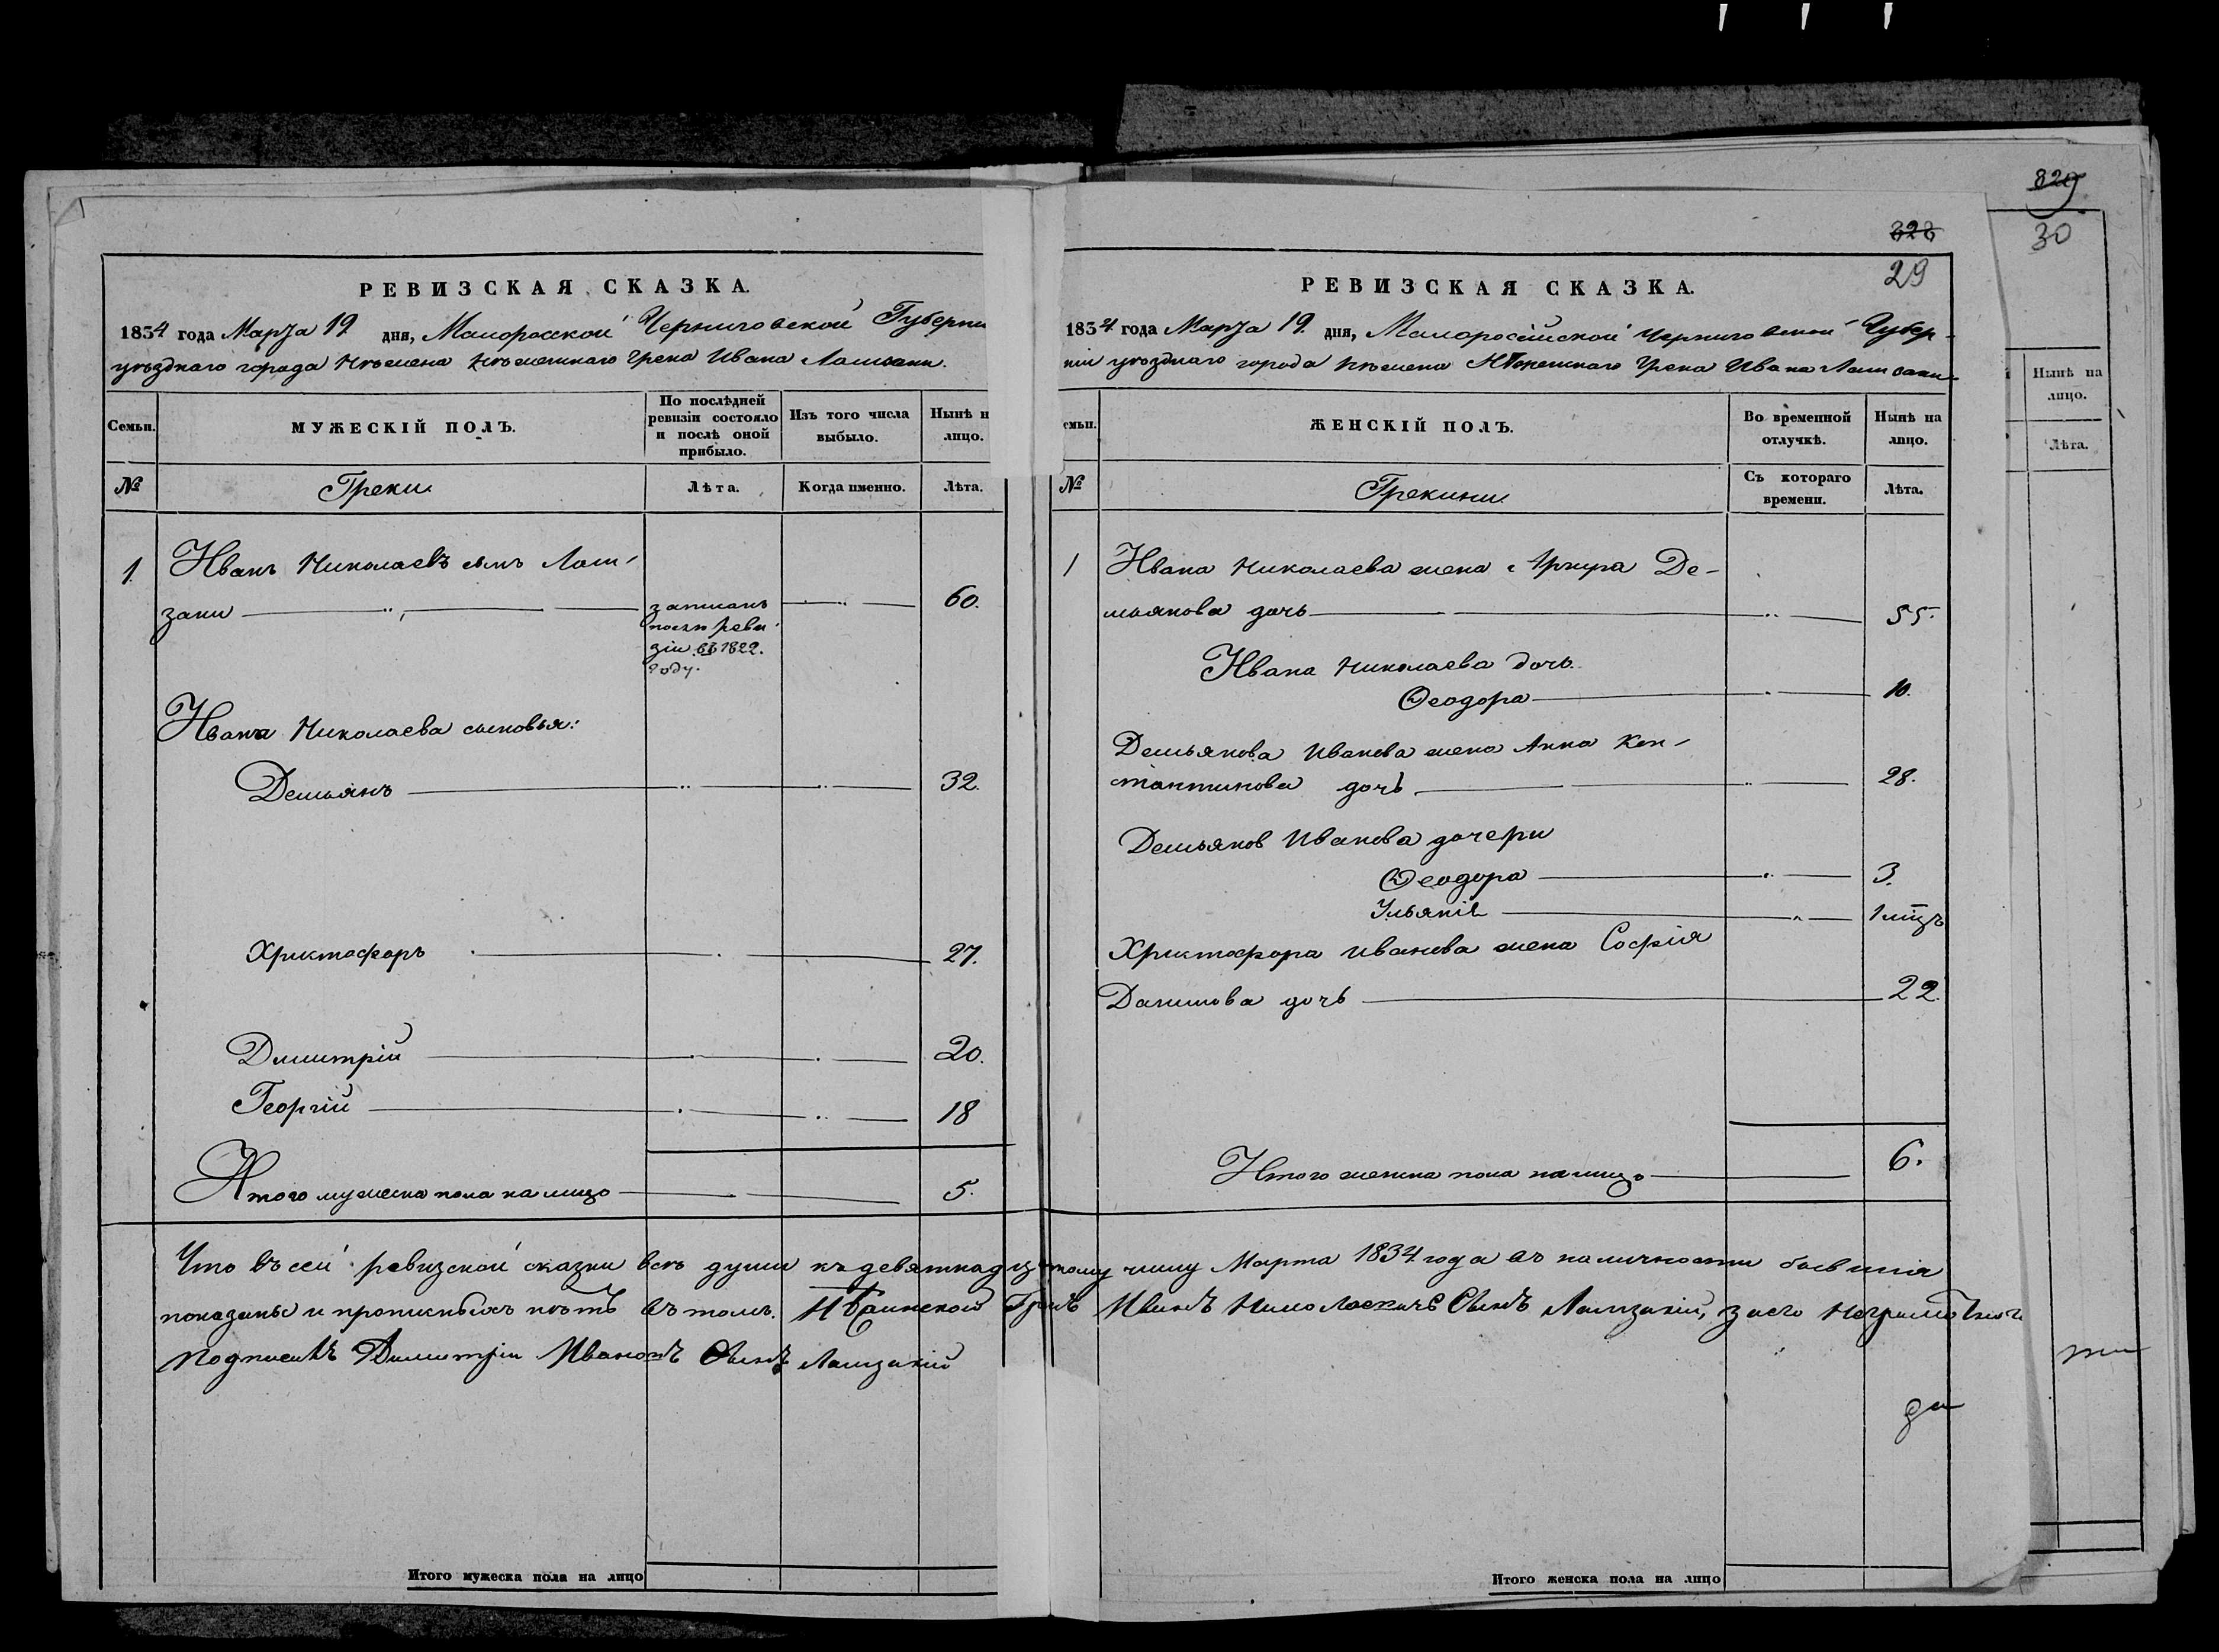 829
30
328
29
РЕВИЗСКАЯ СКАЗКА.
1834 года Марта 19 дня, Малоросской Черниговской Губерни
уѣзднаго города Нѣжена Нѣженскаго Грека Ивана Ламзаки.
Семьи.
МУЖЕСКІЙ ПОЛЪ.
По послѣдней
ревизіи состояло
и послѣ оной
прибыло.
Изъ того числа
выбыло.
Нынѣ н
лицо.
№
Греки
Лѣта.
Когда именно.
Лѣта.
1
Иванъ Николаевъ сынъ Лам-
заки
записанъ
послѣ реви
зіи въ 1822.
году.
60.
Ивана Николаева сыновья:
Демьянъ 32.
Христофоръ 27.
Димитрій 20.
Георгій 18
Итого мужеска пола на лицо 5.
РЕВИЗСКАЯ СКАЗКА.
1834 года Марта 19 дня, Малоросійской Черниговской Губер-
ніи уѣзднаго города Нѣжена Нѣженскаго Грека Ивана Ламзаки
емьи.
ЖЕНСКІЙ ПОЛЪ.
Во временной
отлучкѣ.
Нынѣ на
лицо.
№
Грекини
Съ котораго
времени.
Лѣта.
1
Ивана Николаева жена Де-
мьянова дочь 55.
Ивана Николаева дочь
Ѳеодора 10.
Демьянова Иванова жена Анна Кон-
стантинова дочь 28.
Демьянов Иванова дочери
Ѳеодора 3.
Ульянія 1 мцъ
Христофора Иванова жена Софія
Данилова дочь 22.
Итого женска пола на лицо 6.
Что въ сей ревизской сказки всѣ души къ девятнадцятому числу Марта 1834 года въ наличности бывшія
показаны и прописныхъ нѣтъ въ томъ. Грекъ Иванъ Сынъ Ламзакій, за его
Подписалъ Димитрій Сынъ Ламзакій
да
Итого мужеска пола на лицо
Итого женска пола на лицо
Нынѣ на
лицо.
Лѣта.